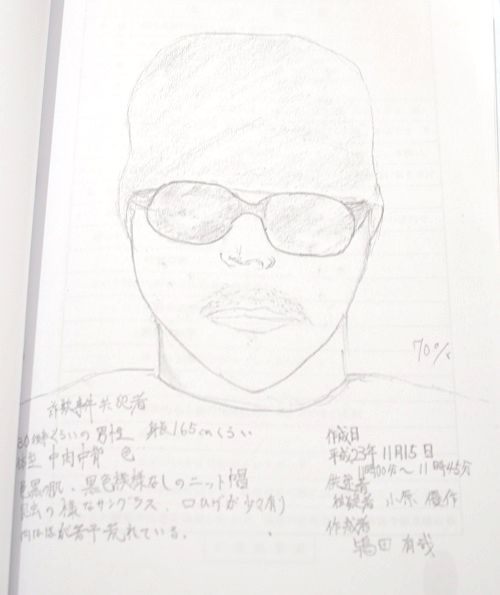 70%
詐欺事件共犯者
30歳くらいの男性 身長165cmくらい
体型 中肉中背 色
色黒の肌、黒色模様なしのニット帽
の様なサングラス、口ひげが少々有り
若干荒れている。
作成日
平成23年11月15日
11時00分〜11時45分
供述者
被疑者 小原
作成者
有哉